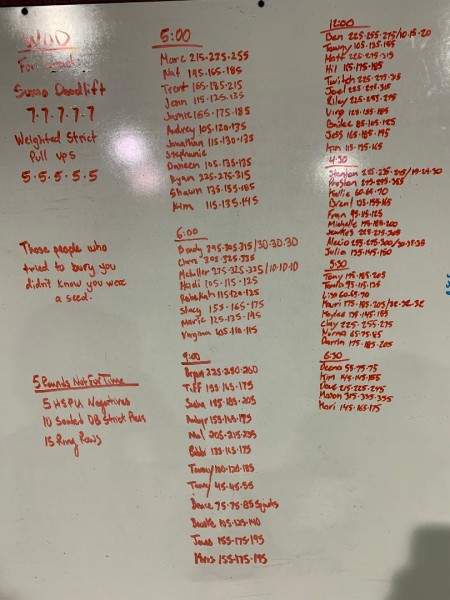 WOD
For
Sumo Deadlift
7.7.7.7.7
Weighted Strict
Pull ups
5.5.5.5.5
Those people who
tried to bury you
didn't know you were
a seed.
5 Rounds Not For Time
5 HSPU Negatives
10 Seated DB Strict Press
15 Ring Rows
5:00
Marc 215.235.255
Nat 145.165.185
Trent 165.185.215
Jenn 115.125.135
Jamie 165.175.185
Audrey 105.120.135
Jonathan 115.130.135
Stephanie
Doreen 105.135.135
Ryan 225.275.315
Shawn 135.155.185
Kim 115.135.145
6:00
Brady 295.305.315/30.30.30
Chris 305.325.335
McWiller 225.325.325/10.10.10
Hadi 105.115.125
Rebekah 115.120.135
Stacy 155.165.175
Marie 125.135.145
Virginia 105.110.115
9:00
Bryan 225.250.260
Tiff 155.165.175
Sasha 185.185.205
155.165.175
205.215.235
135.165.175
Tammy 100.120.185
Tony 45.45.55
75.75.85
105.125.140
Jones 155.175.195
155.175.195
12:00
Ben 225.255.275/10.15.20
Tawny 105.135.155
Matt 225.275.315
Hil 165.175.185
Twitch 225.275.315
Joel 225.275.315
Riley 225.275.275
Ving 125.155.185
Bailee 85.105.125
Jess 165.185.195
Kim 115.135.165
4:30
Stanton
Preston
Kallie 60.65.70
Brent 135.155.165
Fran 95.115.125
Michelle
Alecia
Julia 135.145.150
5:30
Tony 175.185.205
95.115.135
Lisa 60.65.70
Mauri 175.185.205/32.32.32
Haylee 135.145.155
Clay 225.255.275
Norma 65.75.85
Darrin 175.185.205
6:30
Deena 55.75.75
Kim 145.145.155
Dave 215.225.245
Mason 315.335.355
Kari 145.165.175